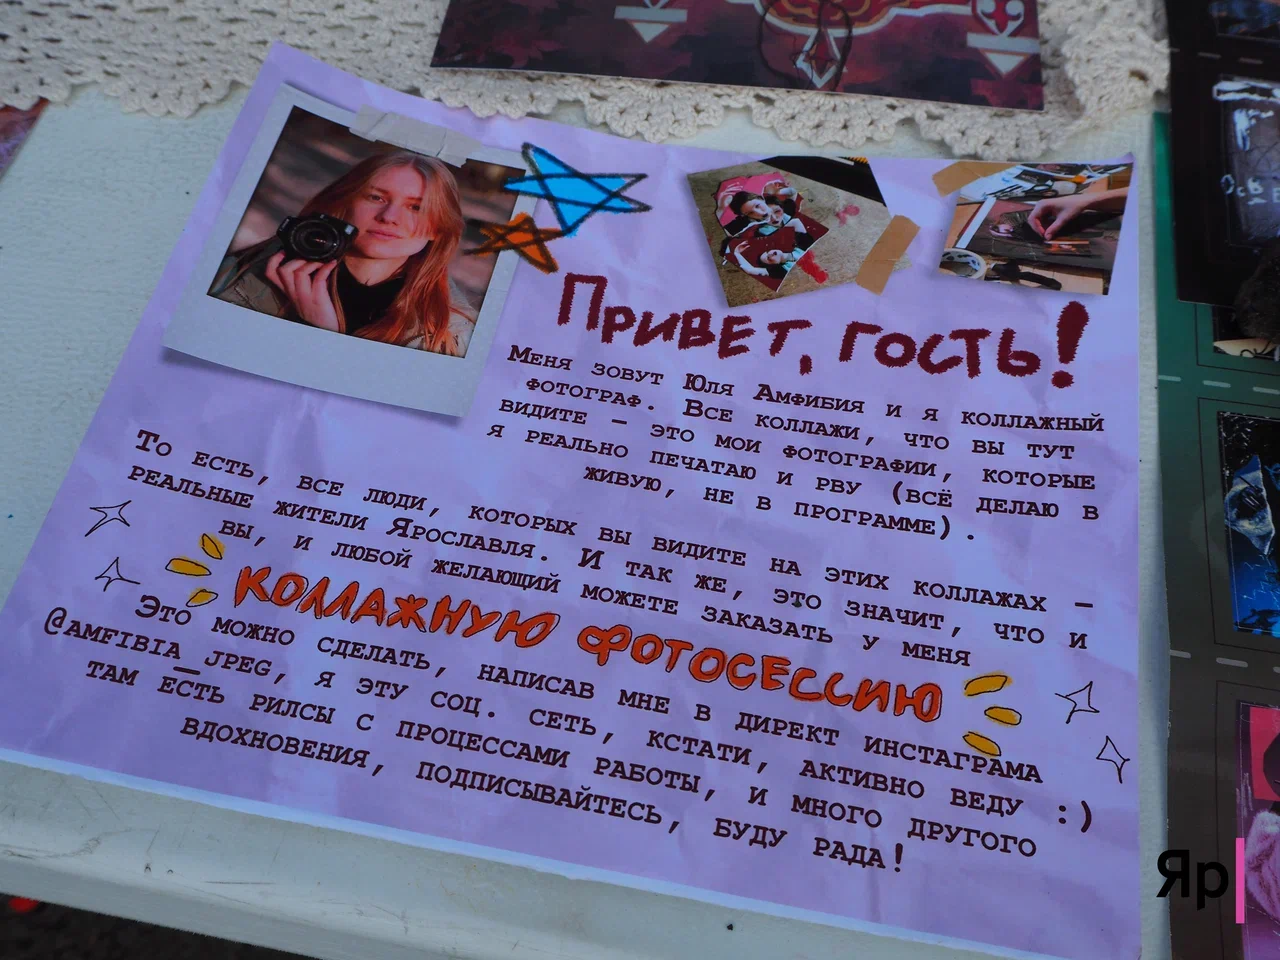 Привет, гость!
Меня зовут Юля Амфибия и я коллажный
фотограф. Все коллажи, что вы тут
видите – это мои фотографии, которые
я реально печатаю и рву (всё делаю в
живую, не в программе).
То есть, все люди, которых вы видите на этих коллажах –
реальные жители Ярославля. И так же, это значит, что и
вы, и любой желающий можете заказать у меня
коллажную фотосессию
Это можно сделать, написав мне в директ инстаграма
@amfibia_jpeg, я эту соц. сеть, кстати, активно веду :)
там есть рилсы с процессами работы, и много другого
вдохновения, подписывайтесь, буду рада!
Яр